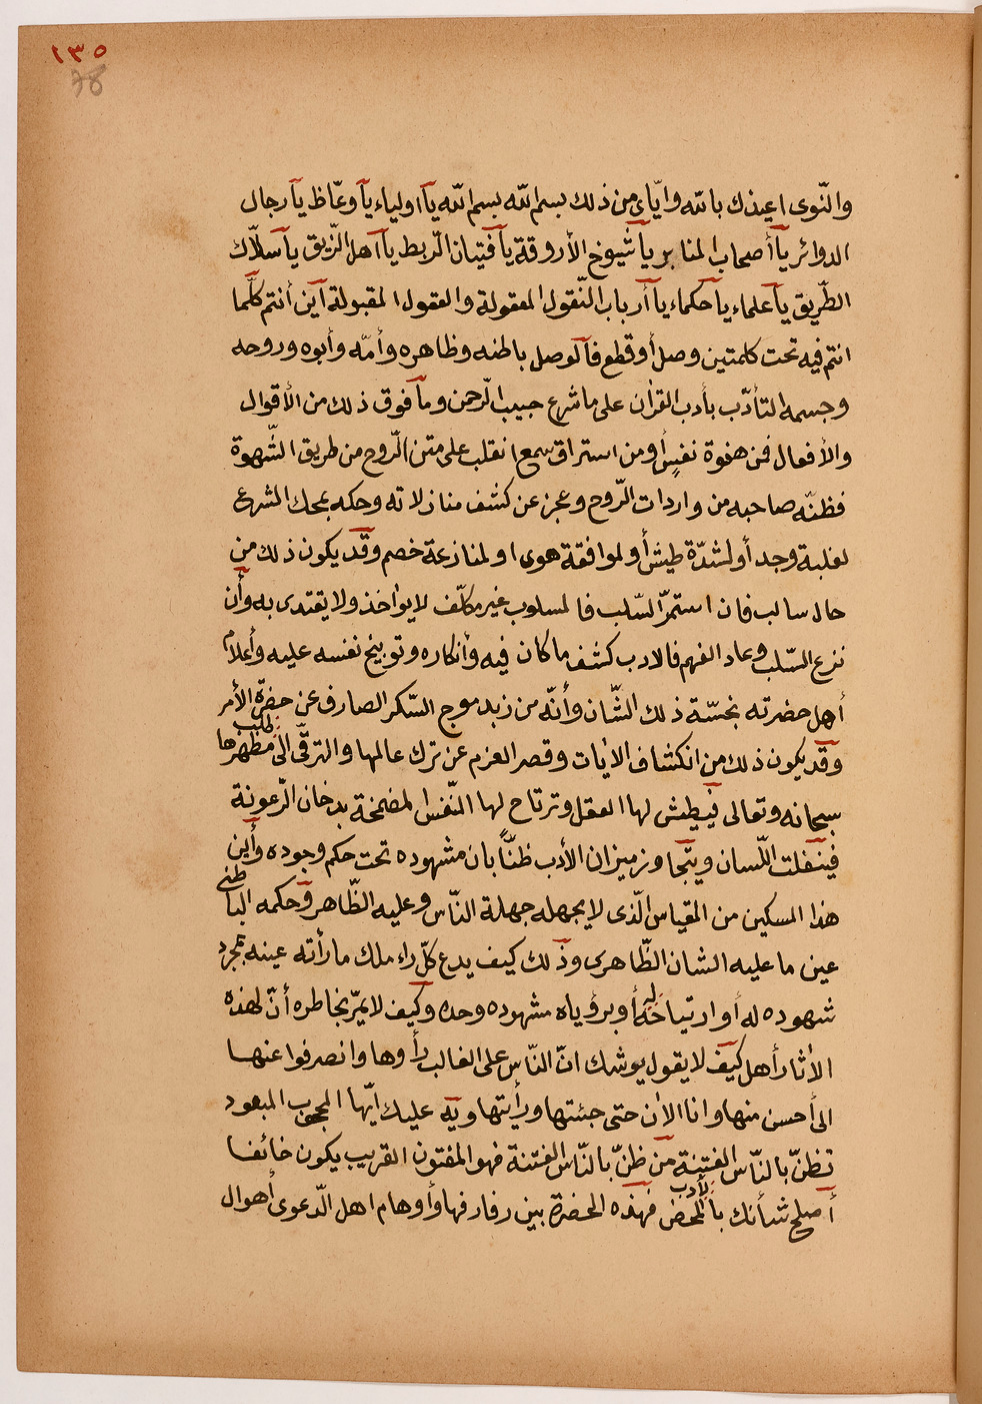 ١٣٥
78
والنّوى اعيذك بالله وايّاى من ذلك بسم الله بسم الله يآ اولياء يآ وعّاظ يآ رجال
الدوائر يآ أصحاب المنابر يآ شيوخ الأروقة يآ فتيان الرّبط يآ اهل الزّيق يآ سلّاك
الطّريق يآ علماء يآ حكماء يآ أرباب النّقول المعقولة والعقول المقبولة أين أنتم كلّما
انتم فيه تحت كلمتين وصل أو قطع فآلوصل باطنه وظاهره وأمّه وأبوه وروحه
وجسمه التأدّب بأدب القرأن على ما شرع حبيب الرّحمن ومآ فوق ذلك من الأقوال
والأفعال فمن هفوة نفسٍ أو من استراق سمع انقلب على متن الرّوح من طريق الشّهوة
فظنّه صاحبه من واردات الرّوح وعجز عن كشف منازلاته وحكه بمحك الشرع
لغلبة وجد أو لشدّة طيش أو لموافقة هوى او لمنازعة خصم وقد يكون ذلك من
حال سالب فان استمرّ السّلب فالمسلوب غير مكلّف لا يواخذ ولا يقتدى به وأن
نزع السّلب وعاد الفهم فالادب كشف ما كان فيه وأنكاره وتوبيخ نفسه عليه وأعلام
أهل حضرته بخسّة ذلك الشّان وأنّه من زبد موج السّكر الصارف عن حضرة الأمر
وقد يكون ذلك من انكشاف الايات وقصر العزم عن ترك عالمها والترقّى الى طلب مظهرها
سبحانه وتعالى فيطيش لها العقل وترتاح لها النّفس المضمخة بدخان الرّعونة
فينفلت اللّسان ويتجاوز ميزان الأدب ظنّاً بان مشهوده تحت حكم وجوده وأين
هذا المسكين من المقياس الّذى لا يجهله جهلة النّاس وعليه الظّاهر وحكمه الباطنى
عين ما عليه الشان الظّاهرى وذلك كيف يدع كلّ راء ملك ما رأته عينه بمجرد
شهوده له أو ارتياحه إليه أو برؤياه مشهوده وحده وكيف لا يمرّ بخاطره أنّ لهذه
الأثار أهل كيف لا يقول يوشك انّ النّاس على الغالب رأوها وانصرفوا عنها
الى أحسن منها وانا الان حتى جئتها ورأيتها ويه عليك ايّها المحجوب المبعود
تظنّ بالنّاس الفتنة من ظنّ بالنّاس الفتنة فهو المفتون القريب يكون خائفا
أصلح شأنك بالأدب المحض فهذه الحضرة بين رفارفها وأوهام اهل الدّعوى أهوال